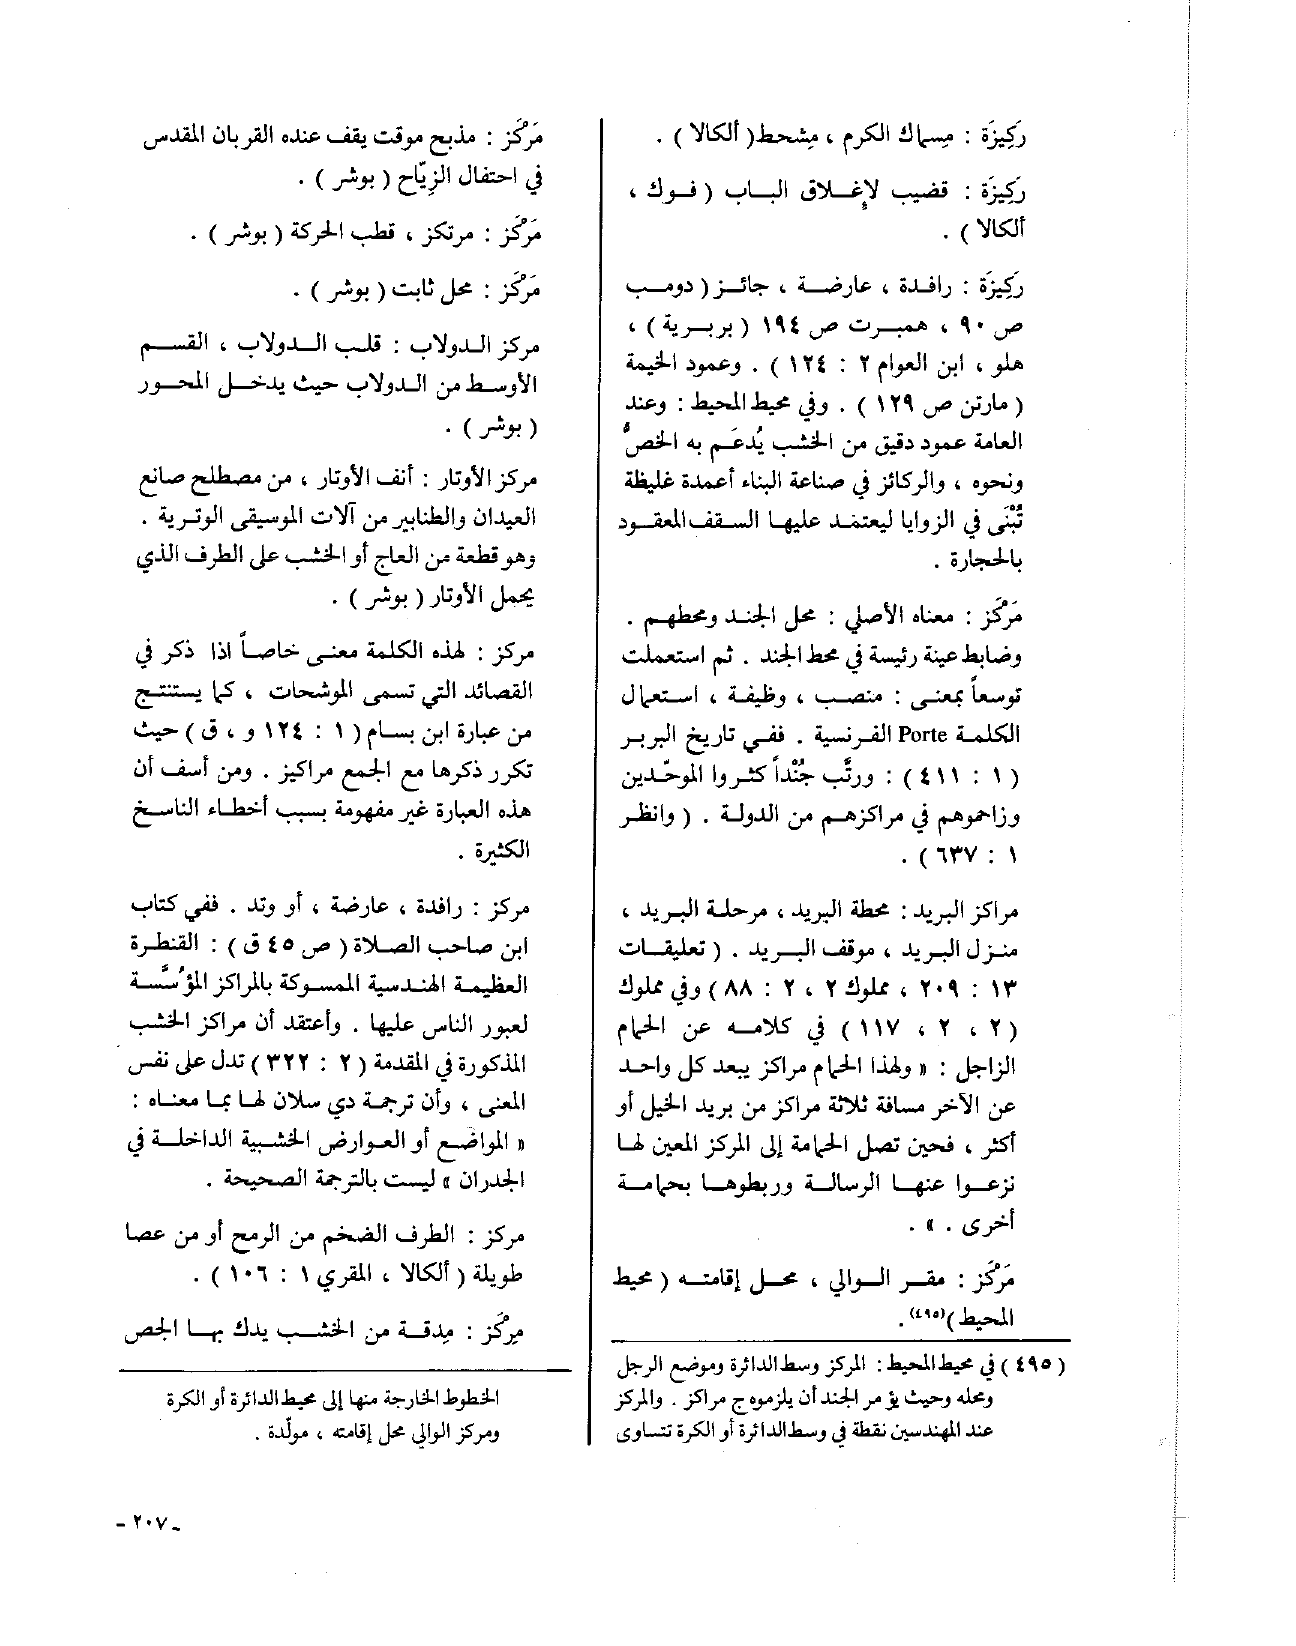 رَكِيزَة : مِسماك الكرم ، مِشحط (ألكالا) .
رَكِيزَة : قضيب لإغلاق الباب (فوك ،
ألكالا) .
رَكِيزَة : رافدة ، عارضة ، جائز (دومب
ص ٩٠ ، همبرت ص ١٩٤ (بربرية) ،
هلو ، ابن العوام ٢ : ١٢٤) . وعمود الخيمة
(مارتن ص ١٢٩) . وفي محيط المحيط : وعند
العامة عمود دقيق من الخشب يُدعَم به الخصُّ
ونحوه ، والركائز في صناعة البناء أعمدة غليظة
تُبْنَى في الزوايا ليعتمد عليها السقف المعقود
بالحجارة .
مَرْكَز : معناه الأصلي : محل الجند ومحطهم .
وضابط عينة رئيسة في محط الجند . ثم استعملت
توسعاً بمعنى : منصب ، وظيفة ، استعمال
الكلمة Porte الفرنسية . ففي تاريخ البربر
(١ : ٤١١) : ورتَّب جُنْداً كثروا الموحّدين
وزاحموهم في مراكزهم من الدولة . (وانظر
١ : ٦٣٧) .
مراكز البريد : محطة البريد ، مرحلة البريد ،
منزل البريد ، موقف البريد . (تعليقات
١٣ : ٢٠٩ ، مملوك ٢ ، ٢ : ٨٨) وفي مملوك
(٢ ، ٢ ، ١١٧) في كلامه عن الحمام
الزاجل : « ولهذا الحمام مراكز يبعد كل واحد
عن الآخر مسافة ثلاثة مراكز من بريد الخيل أو
أكثر ، فحين تصل الحمامة إلى المركز المعين لها
نزعوا عنها الرسالة وربطوها بحمامة
أخرى . » .
مَرْكَز : مقر الوالي ، محل إقامته (محيط
المحيط)(٤٩٥).
(٤٩٥) في محيط المحيط : المركز وسط الدائرة وموضع الرجل
ومحله وحيث يؤمر الجند أن يلزموه ج مراكز . والمركز
عند المهندسين نقطة في وسط الدائرة أو الكرة تتساوى
مَرْكَز : مذبح موقت يقف عنده القربان المقدس
في احتفال الزِيّاح (بوشر) .
مَرْكَز : مرتكز ، قطب الحركة (بوشر) .
مَرْكَز : محل ثابت (بوشر) .
مركز الدولاب : قلب الدولاب ، القسم
الأوسط من الدولاب حيث يدخل المحور
(بوشر) .
مركز الأوتار : أنف الأوتار ، من مصطلح صانع
العيدان والطنابير من آلات الموسيقى الوترية .
وهو قطعة من العاج أو الخشب على الطرف الذي
يحمل الأوتار (بوشر) .
مركز : لهذه الكلمة معنى خاصاً اذا ذكر في
القصائد التي تسمى الموشحات ، كما يستنتج
من عبارة ابن بسام (١ : ١٢٤ و ، ق) حيث
تكرر ذكرها مع الجمع مراكيز . ومن أسف أن
هذه العبارة غير مفهومة بسبب أخطاء الناسخ
الكثيرة .
مركز : رافدة ، عارضة ، أو وتد . ففي كتاب
ابن صاحب الصلاة (ص ٤٥ ق) : القنطرة
العظيمة الهندسية المسوكة بالمراكز المؤسَّسة
لعبور الناس عليها . وأعتقد أن مراكز الخشب
المذكورة في المقدمة (٢ : ٣٢٢) تدل على نفس
المعنى ، وأن ترجمة دي سلان لها بما معناه :
« المواضع أو العوارض الخشبية الداخلة في
الجدران » ليست بالترجمة الصحيحة .
مركز : الطرف الضخم من الرمح أو من عصا
طويلة (ألكالا ، المقري ١ : ١٠٦) .
مِرْكَز : مِدقة من الخشب يدك بها الجص
الخطوط الخارجة منها إلى محيط الدائرة أو الكرة
ومركز الوالي محل إقامته ، مولّدة .
- ٢٠٧ -